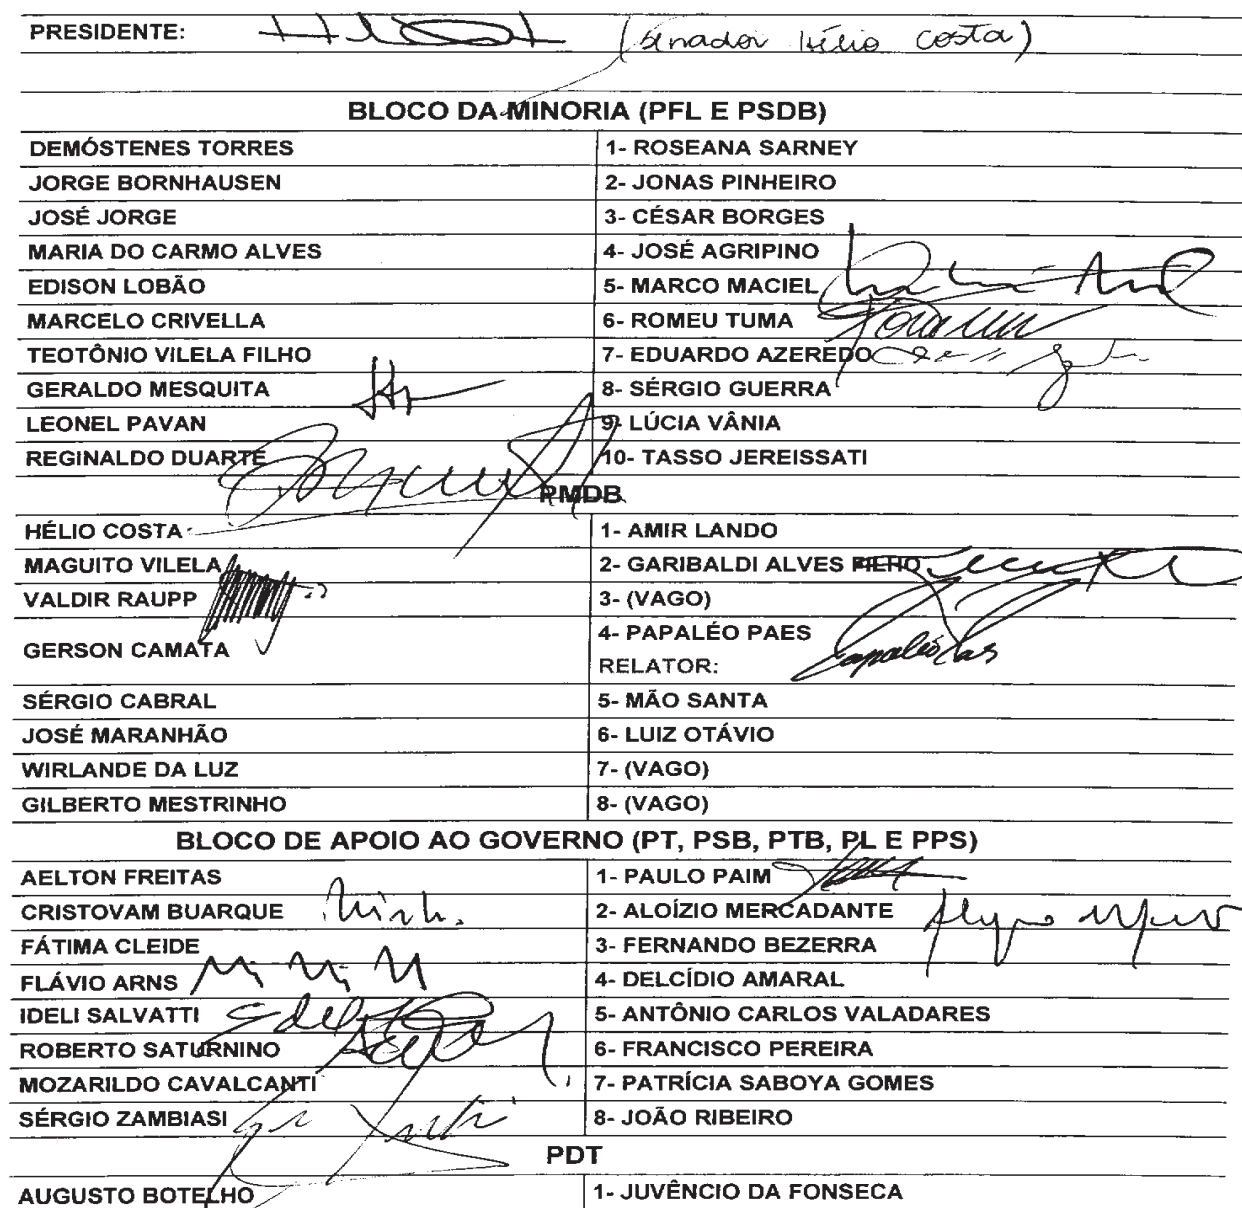 PRESIDENTE: (Senador Hélio Costa)
BLOCO DA MINORIA (PFL E PSDB)
DEMÓSTENES TORRES 1- ROSEANA SARNEY
JORGE BORNHAUSEN 2- JONAS PINHEIRO
JOSÉ JORGE 3- CÉSAR BORGES
MARIA DO CARMO ALVES 4- JOSÉ AGRIPINO
EDISON LOBÃO 5- MARCO MACIEL
MARCELO CRIVELLA 6- ROMEU TUMA
TEOTÔNIO VILELA FILHO 7- EDUARDO AZEREDO
GERALDO MESQUITA 8- SÉRGIO GUERRA
LEONEL PAVAN 9- LÚCIA VÂNIA
REGINALDO DUARTE 10- TASSO JEREISSATI
PMDB
HÉLIO COSTA 1- AMIR LANDO
MAGUITO VILELA 2- GARIBALDI ALVES FILHO
VALDIR RAUPP 3- (VAGO)
GERSON CAMATA 4- PAPALÉO PAES
RELATOR: Papaléo Paes
SÉRGIO CABRAL 5- MÃO SANTA
JOSÉ MARANHÃO 6- LUIZ OTÁVIO
WIRLANDE DA LUZ 7- (VAGO)
GILBERTO MESTRINHO 8- (VAGO)
BLOCO DE APOIO AO GOVERNO (PT, PSB, PTB, PL E PPS)
AELTON FREITAS 1- PAULO PAIM
CRISTOVAM BUARQUE 2- ALOÍZIO MERCADANTE
FÁTIMA CLEIDE 3- FERNANDO BEZERRA
FLÁVIO ARNS 4- DELCÍDIO AMARAL
IDELI SALVATTI 5- ANTÔNIO CARLOS VALADARES
ROBERTO SATURNINO 6- FRANCISCO PEREIRA
MOZARILDO CAVALCANTI 7- PATRÍCIA SABOYA GOMES
SÉRGIO ZAMBIASI 8- JOÃO RIBEIRO
PDT
AUGUSTO BOTELHO 1- JUVÊNCIO DA FONSECA